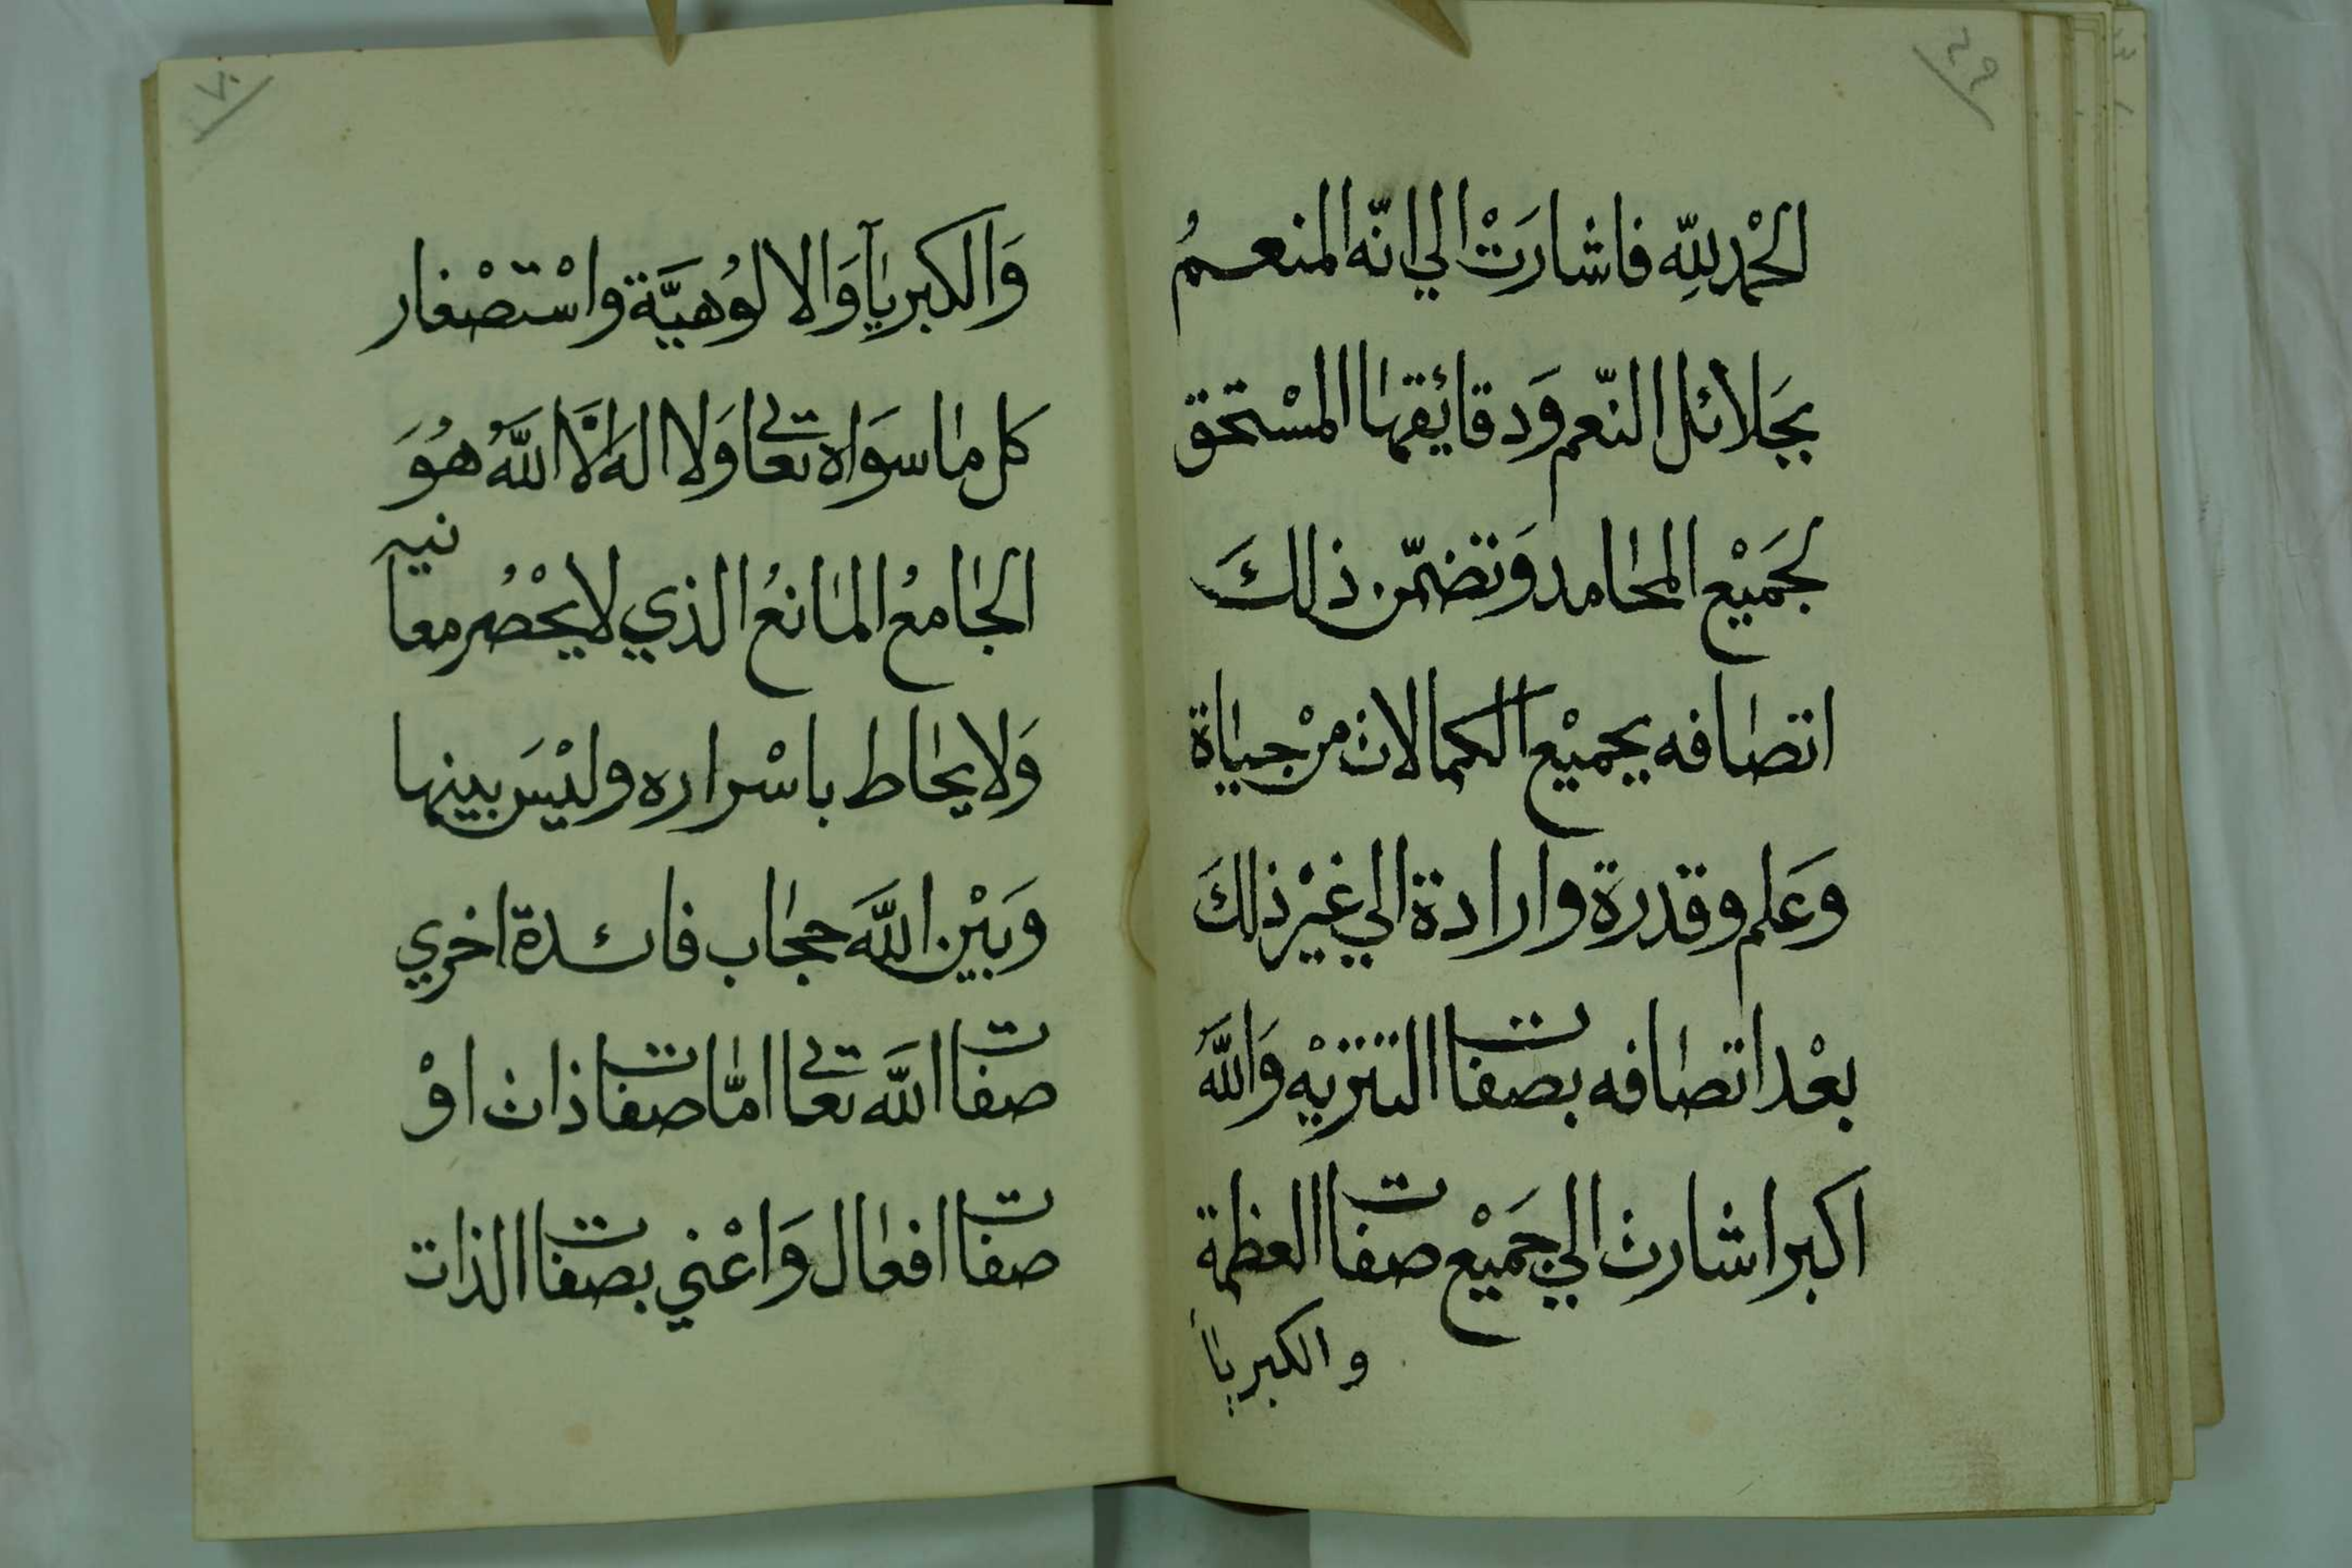 ٤٩
الحْمد للِّه فاشارَتْ الي انّه المنعمُ
بجَلائل النّعم وَدقائقها المسْتحق
لجَميْع المحامد وَتضمّن ذلكَ
اتصافه بجميْع الكمالات منْ حياة
وعَلم وقدرة وارادة الي غيْر ذلكَ
بعْد اتصافه بصفات التنزيْه وَاللّهُ
اكبر اشارت الي جَميْع صفات العظمة
والكبريآ
٧٠
وَالكبريآ وَالالوُهيَّة واسْتصْغار
كل ما سوَاه تعالي وَلا اله الَّا اللَّهُ هُوَ
الجامعُ المانعُ الذي لا يحْصُر معانيه
وَلا يحاط باسْراره وليْسَ بينها
وَبيْن اللَّه حجاب فائدة اخري
صفات اللَّه تعالي امّا صفات ذات اوْ
صفات افعال وَاعْني بصفات الذات